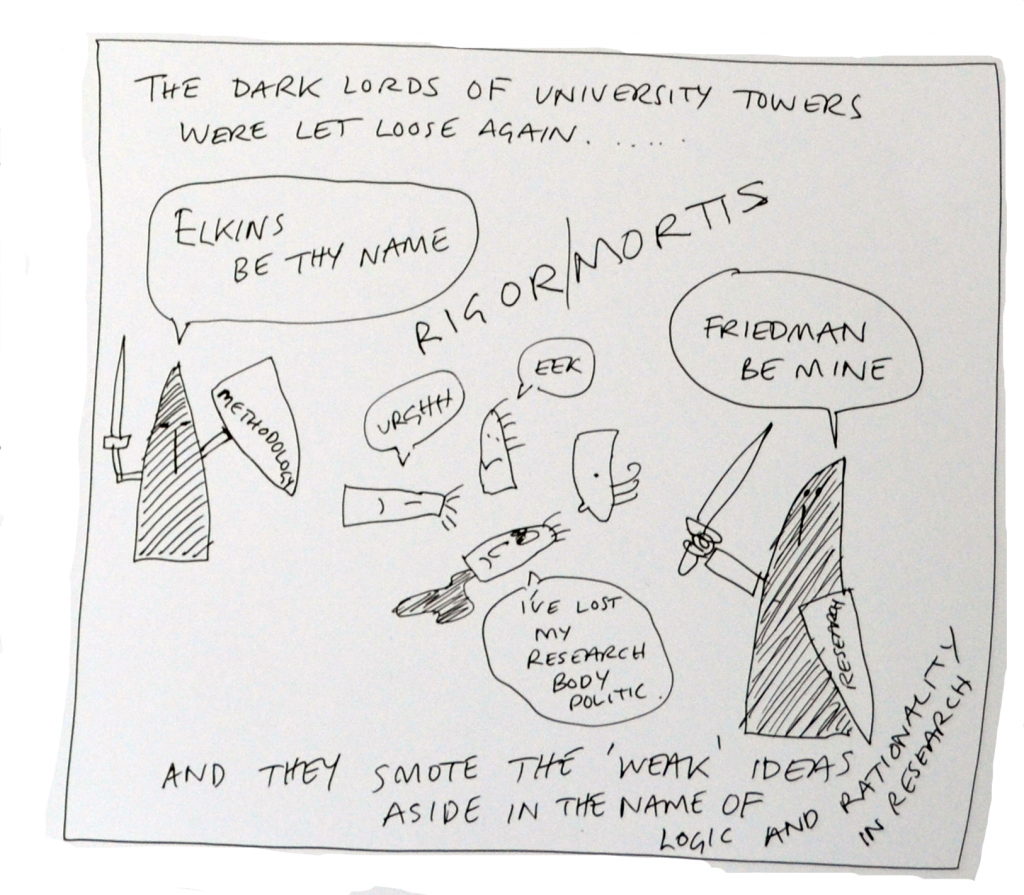 THE DARK LORDS OF UNIVERSITY TOWERS
WERE LET LOOSE AGAIN. .....
ELKINS
BE THY NAME
RIGOR/MORTIS
FRIEDMAN
BE MINE
EEK
URGHHH
METHODOLOGY
I'VE LOST
MY
RESEARCH
BODY
POLITIC.
RESEARCH
AND THEY SMOTE THE 'WEAK' IDEAS
ASIDE IN THE NAME OF
LOGIC AND RATIONALITY
IN RESEARCH